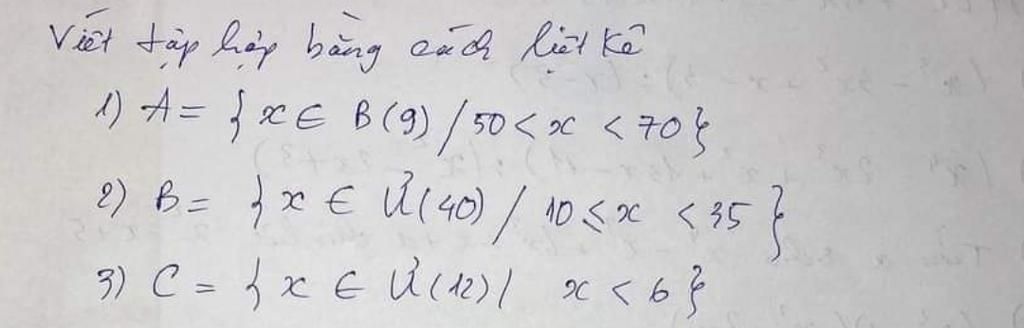 Viết tập hợp bằng cách liệt kê
1) A = { x ∈ B(9) / 50 < x < 70 }
2) B = { x ∈ Ư(40) / 10 ≤ x < 35 }
3) C = { x ∈ Ư(12) / x < 6 }